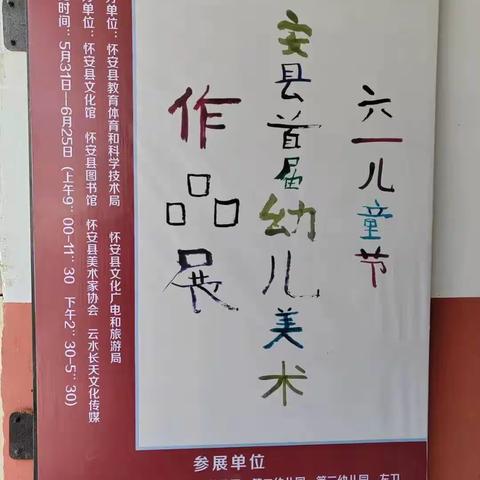 六一儿童节
安县首届幼儿美术
作品展
办单位：怀安县教育体育和科学技术局 怀安县文化广电和旅游局
办单位：怀安县文化馆 怀安县图书馆 怀安县美术家协会 云水长天文化传媒
时间：5月31日—6月25日（上午9：00-11：30 下午2：30-5：30）
参展单位